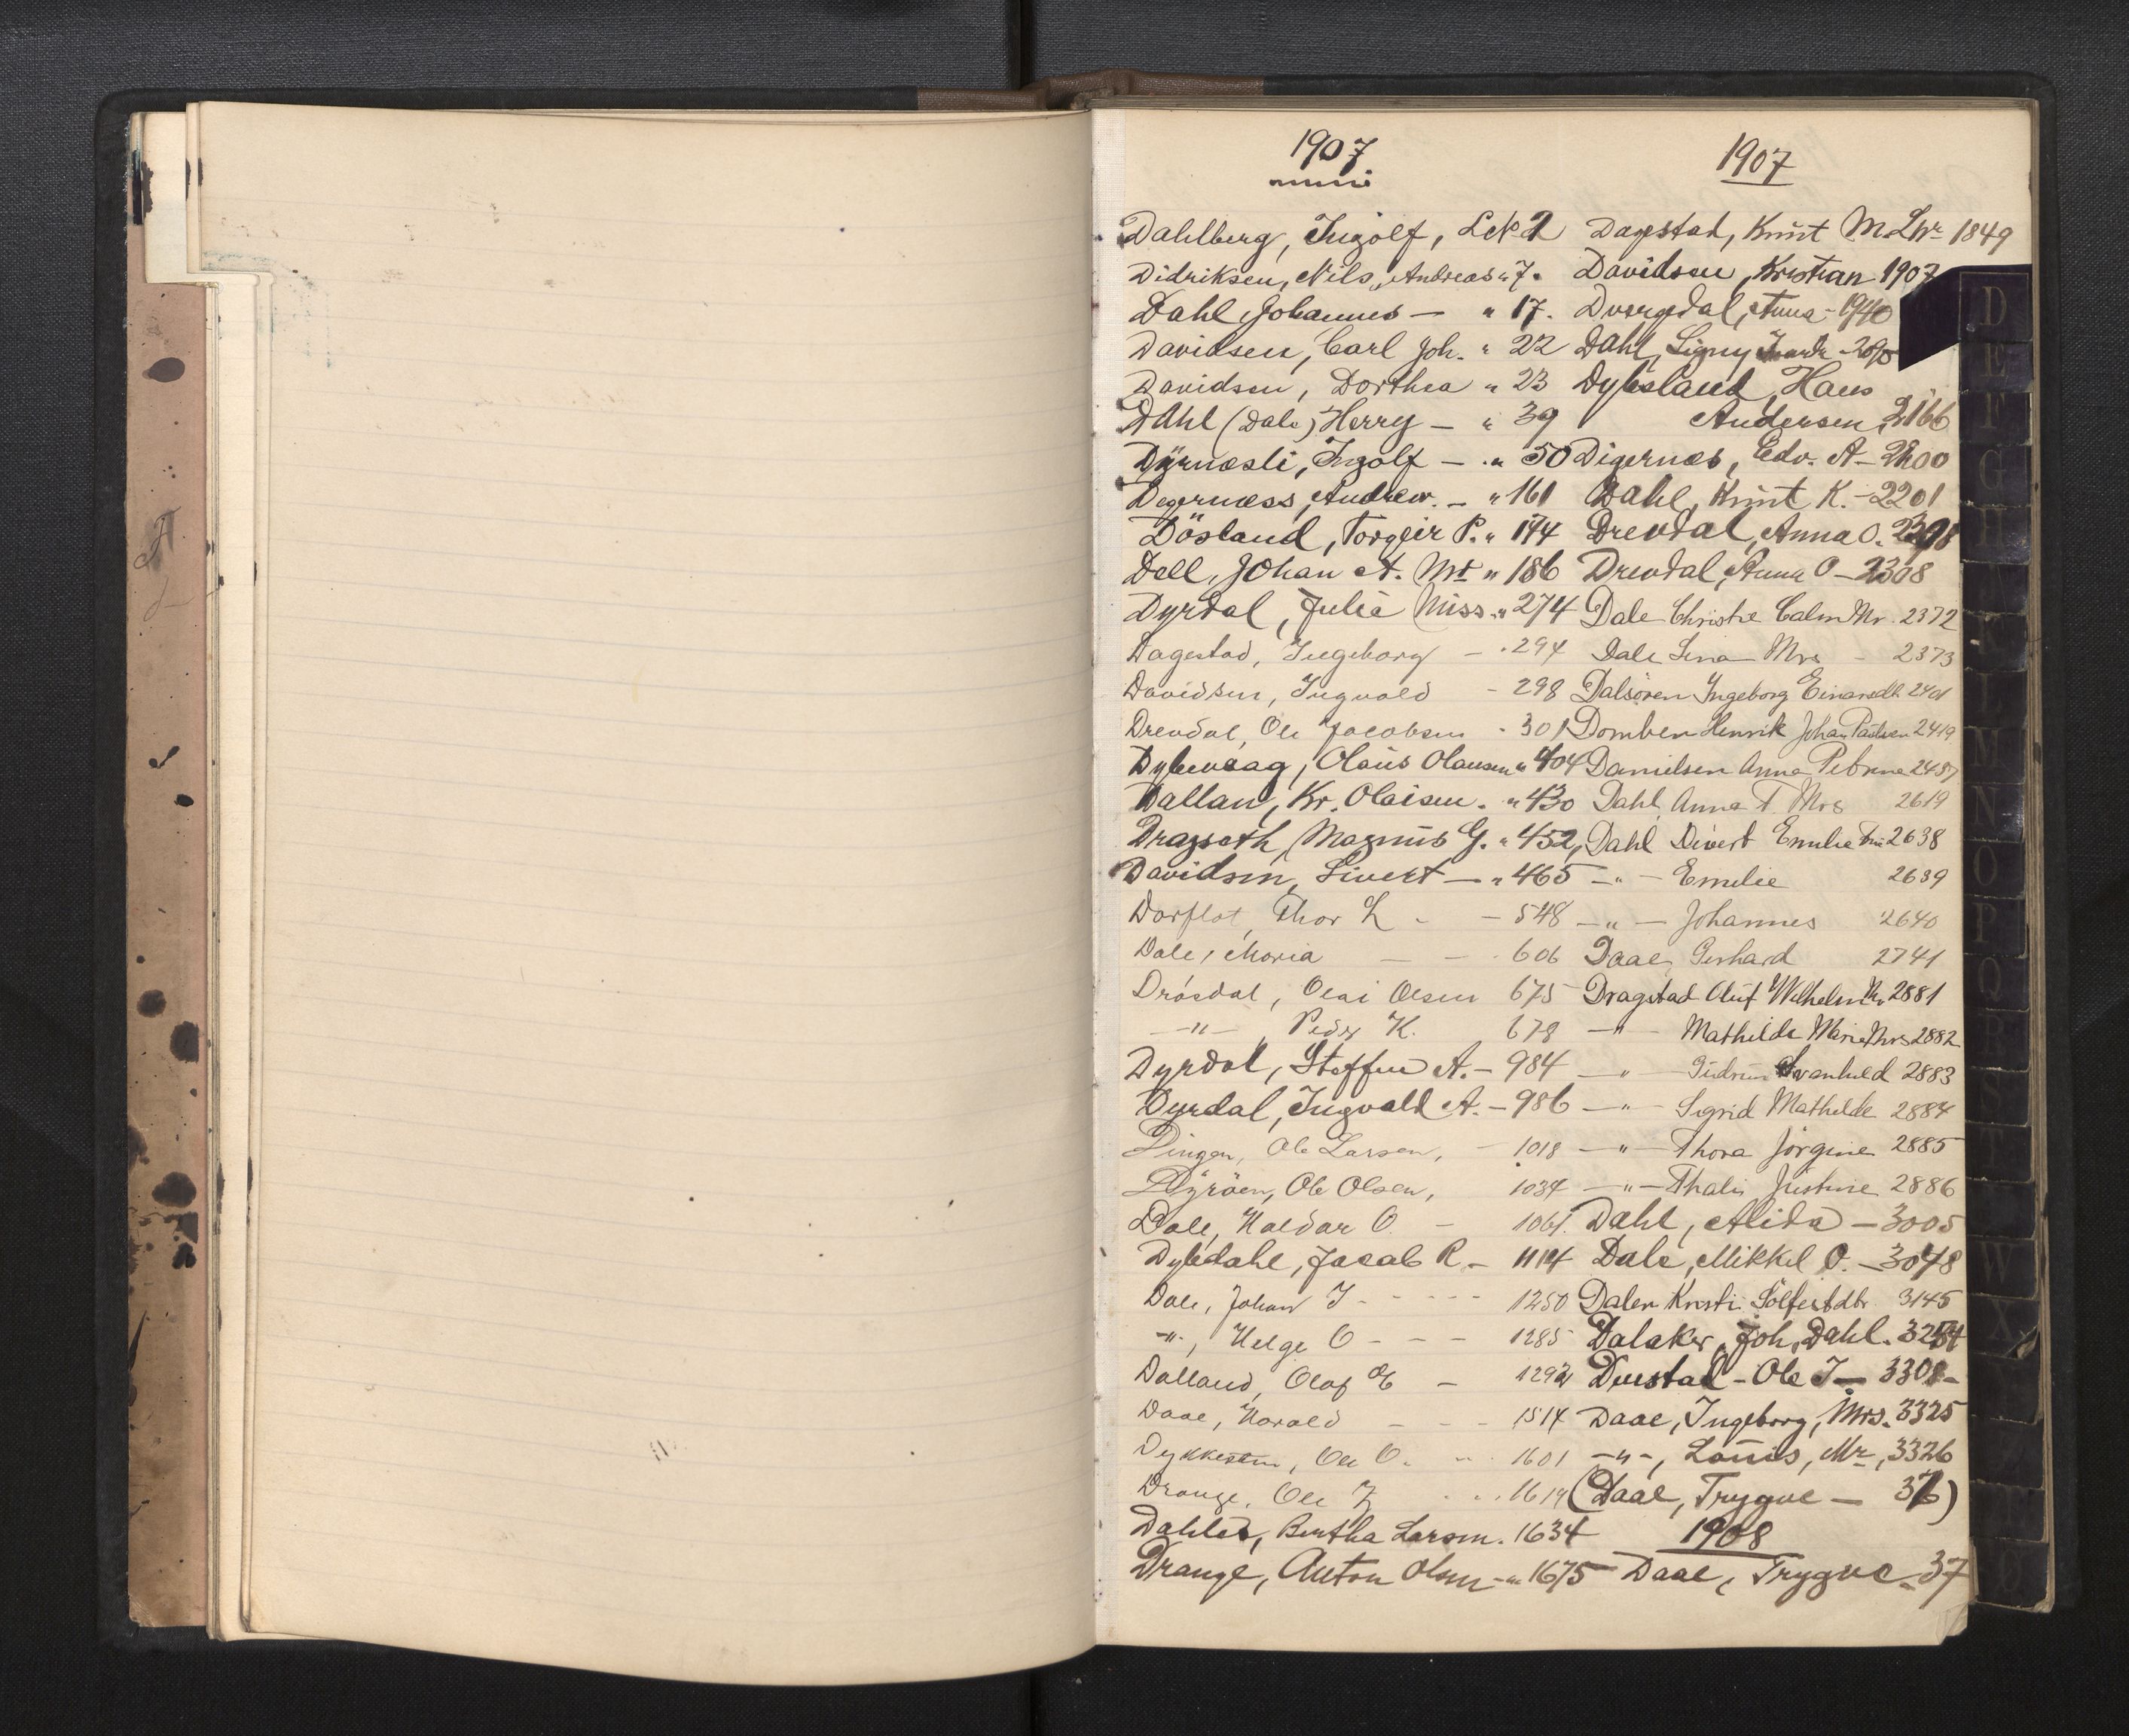 1907
Dahlberg, Ingolf, Lck 2
Didriksen, Nils, Andreas " 7.
Dahl, Johannes — " 17.
Davidsen, Carl Joh. " 22
Davidsen, Dorthea " 23
Dahl (Dale) Herry — " 39
Dyrnæsli, Ingolf — " 50
Degernæss, Andrew. — " 161
Dösland, Torgeir P. " 174
Dell, Johan A. Mr " 186
Dyrdal, Julia Miss. " 274
Dagestad, Ingeborg — 294
Davidsen, Ingvald - 298
Drevdal, Ole Jacobsen - 301
Dybevaag, Olaus Olausen " 404
Dallan, Kr. Olaisen. " 430
Dragseth, Magnus G. " 452,
Davidsen, Sivert — " 465
Dorflot, Thor L - — 548
Dale, Maria — — 606
Drösdal, Olai Olsen 675
—"— , Peder K. 678
Dyrdal, Steffen A. — 984
Dyrdal, Ingvald A. — 986
Dingen, Ole Larsen, — 1018
Dyröen, Ole Olsen, 1034
Dale, Haldor O — 1061.
Dybdahl, Jacob R. — 1114
Dale, Johan J - - - - 1250
-"-, Helge O - - — 1285
Dalland, Olaf — 1292
Daae, Harald — — - 1514
Ole O. 1601
Drange, Ole 1619
Bertha Larsen. 1634
Drange, Anton Olsen — " 1675
1907
Dagestad, Knut M. 1849
Davidsen, Kristian 1907
Anna - 1940
Dahl, Signy
Dybsland, Hans
Andersen, 2166
Digernæs, Edv. A — 2200
Dahl, Knut K. — 2201
Drevdal, Anna O. 2308
Drevdal, Anna O — 2308
Dale Christie Mr. 2372
Dale Lina Mrs — 2373
Dalsören Ingeborg Einarsdtr 2401
Domben Henrik Johan 2419
Danielsen Anna 2437
Dahl, Anna T Mrs 2619
Dahl Sivert 2638
—"— Emelie 2639
—"— Johannes 2640
Daae, Gerhard 2741
Dragstad Oluf Wilhelm Mr 2881
—"— Mathilde Marie Mrs 2882
—"— Gudrun Svanhild 2883
—"— Sigrid Mathilde 2884
—"— Thora Jörgine 2885
—"— Justine 2886
Dahl, Alida — 3005
Dale, Mikkel O. — 3048
Dalen Kristi Solfestdtr 3145
Dalaker, Joh, Dahl. 3254
Ole I — 3308 —
Daae, Ingeborg, Mrs. 3325
—"—, Louis, Mr, 3326
(Daae, Trygve — 37)
1908
Daae, Trygve — 37
D
E
F
G
I
L
M
N
O
P
Q
R
S
T
W
X